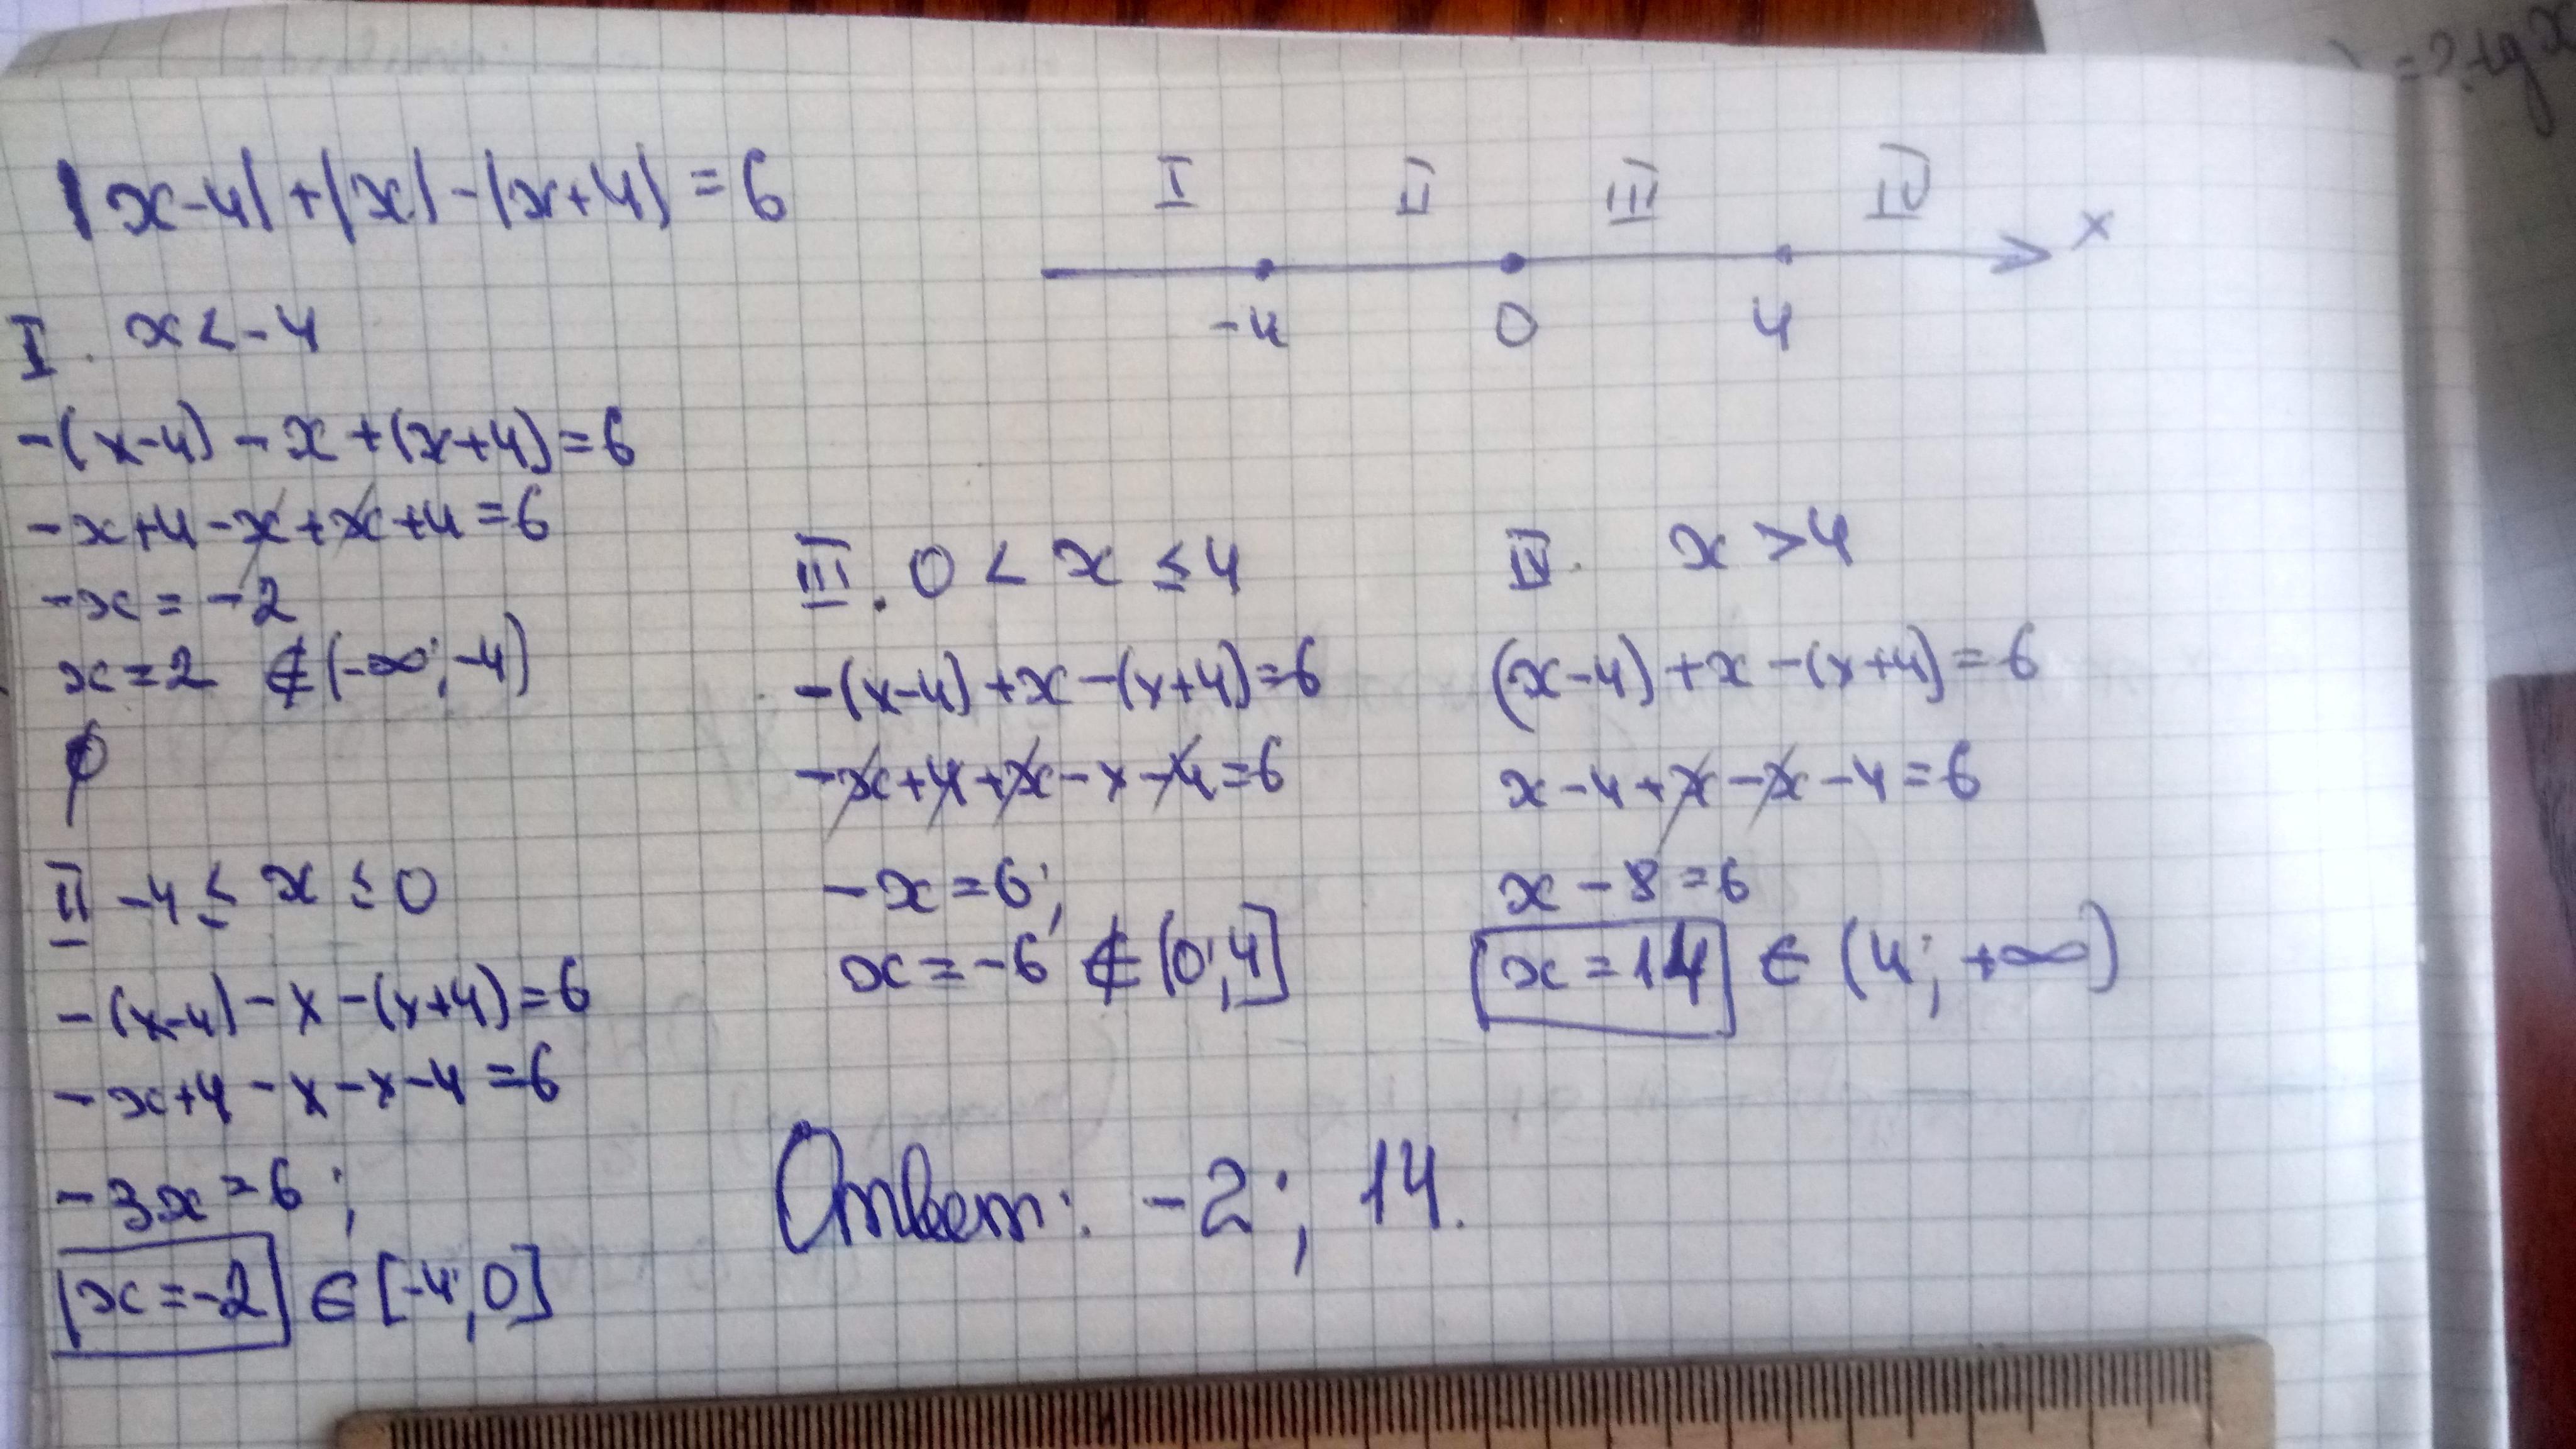 |x-4|+|x|-|x+4|=6
I II III IV
-4 0 4 x
I. x<-4
-(x-4)-x+(x+4)=6
-x+4-x+x+4=6
-x=-2
x=2 ∉(-∞;-4)
∅
II -4≤x≤0
-(x-4)-x-(x+4)=6
-x+4-x-x-4=6
-3x=6;
x=-2 ∈[-4;0]
III. 0<x≤4
-(x-4)+x-(x+4)=6
-x+4+x-x-4=6
-x=6;
x=-6 ∉(0;4]
IV. x>4
(x-4)+x-(x+4)=6
x-4+x-x-4=6
x-8=6
x=14 ∈(4;+∞)
Ответ: -2; 14.